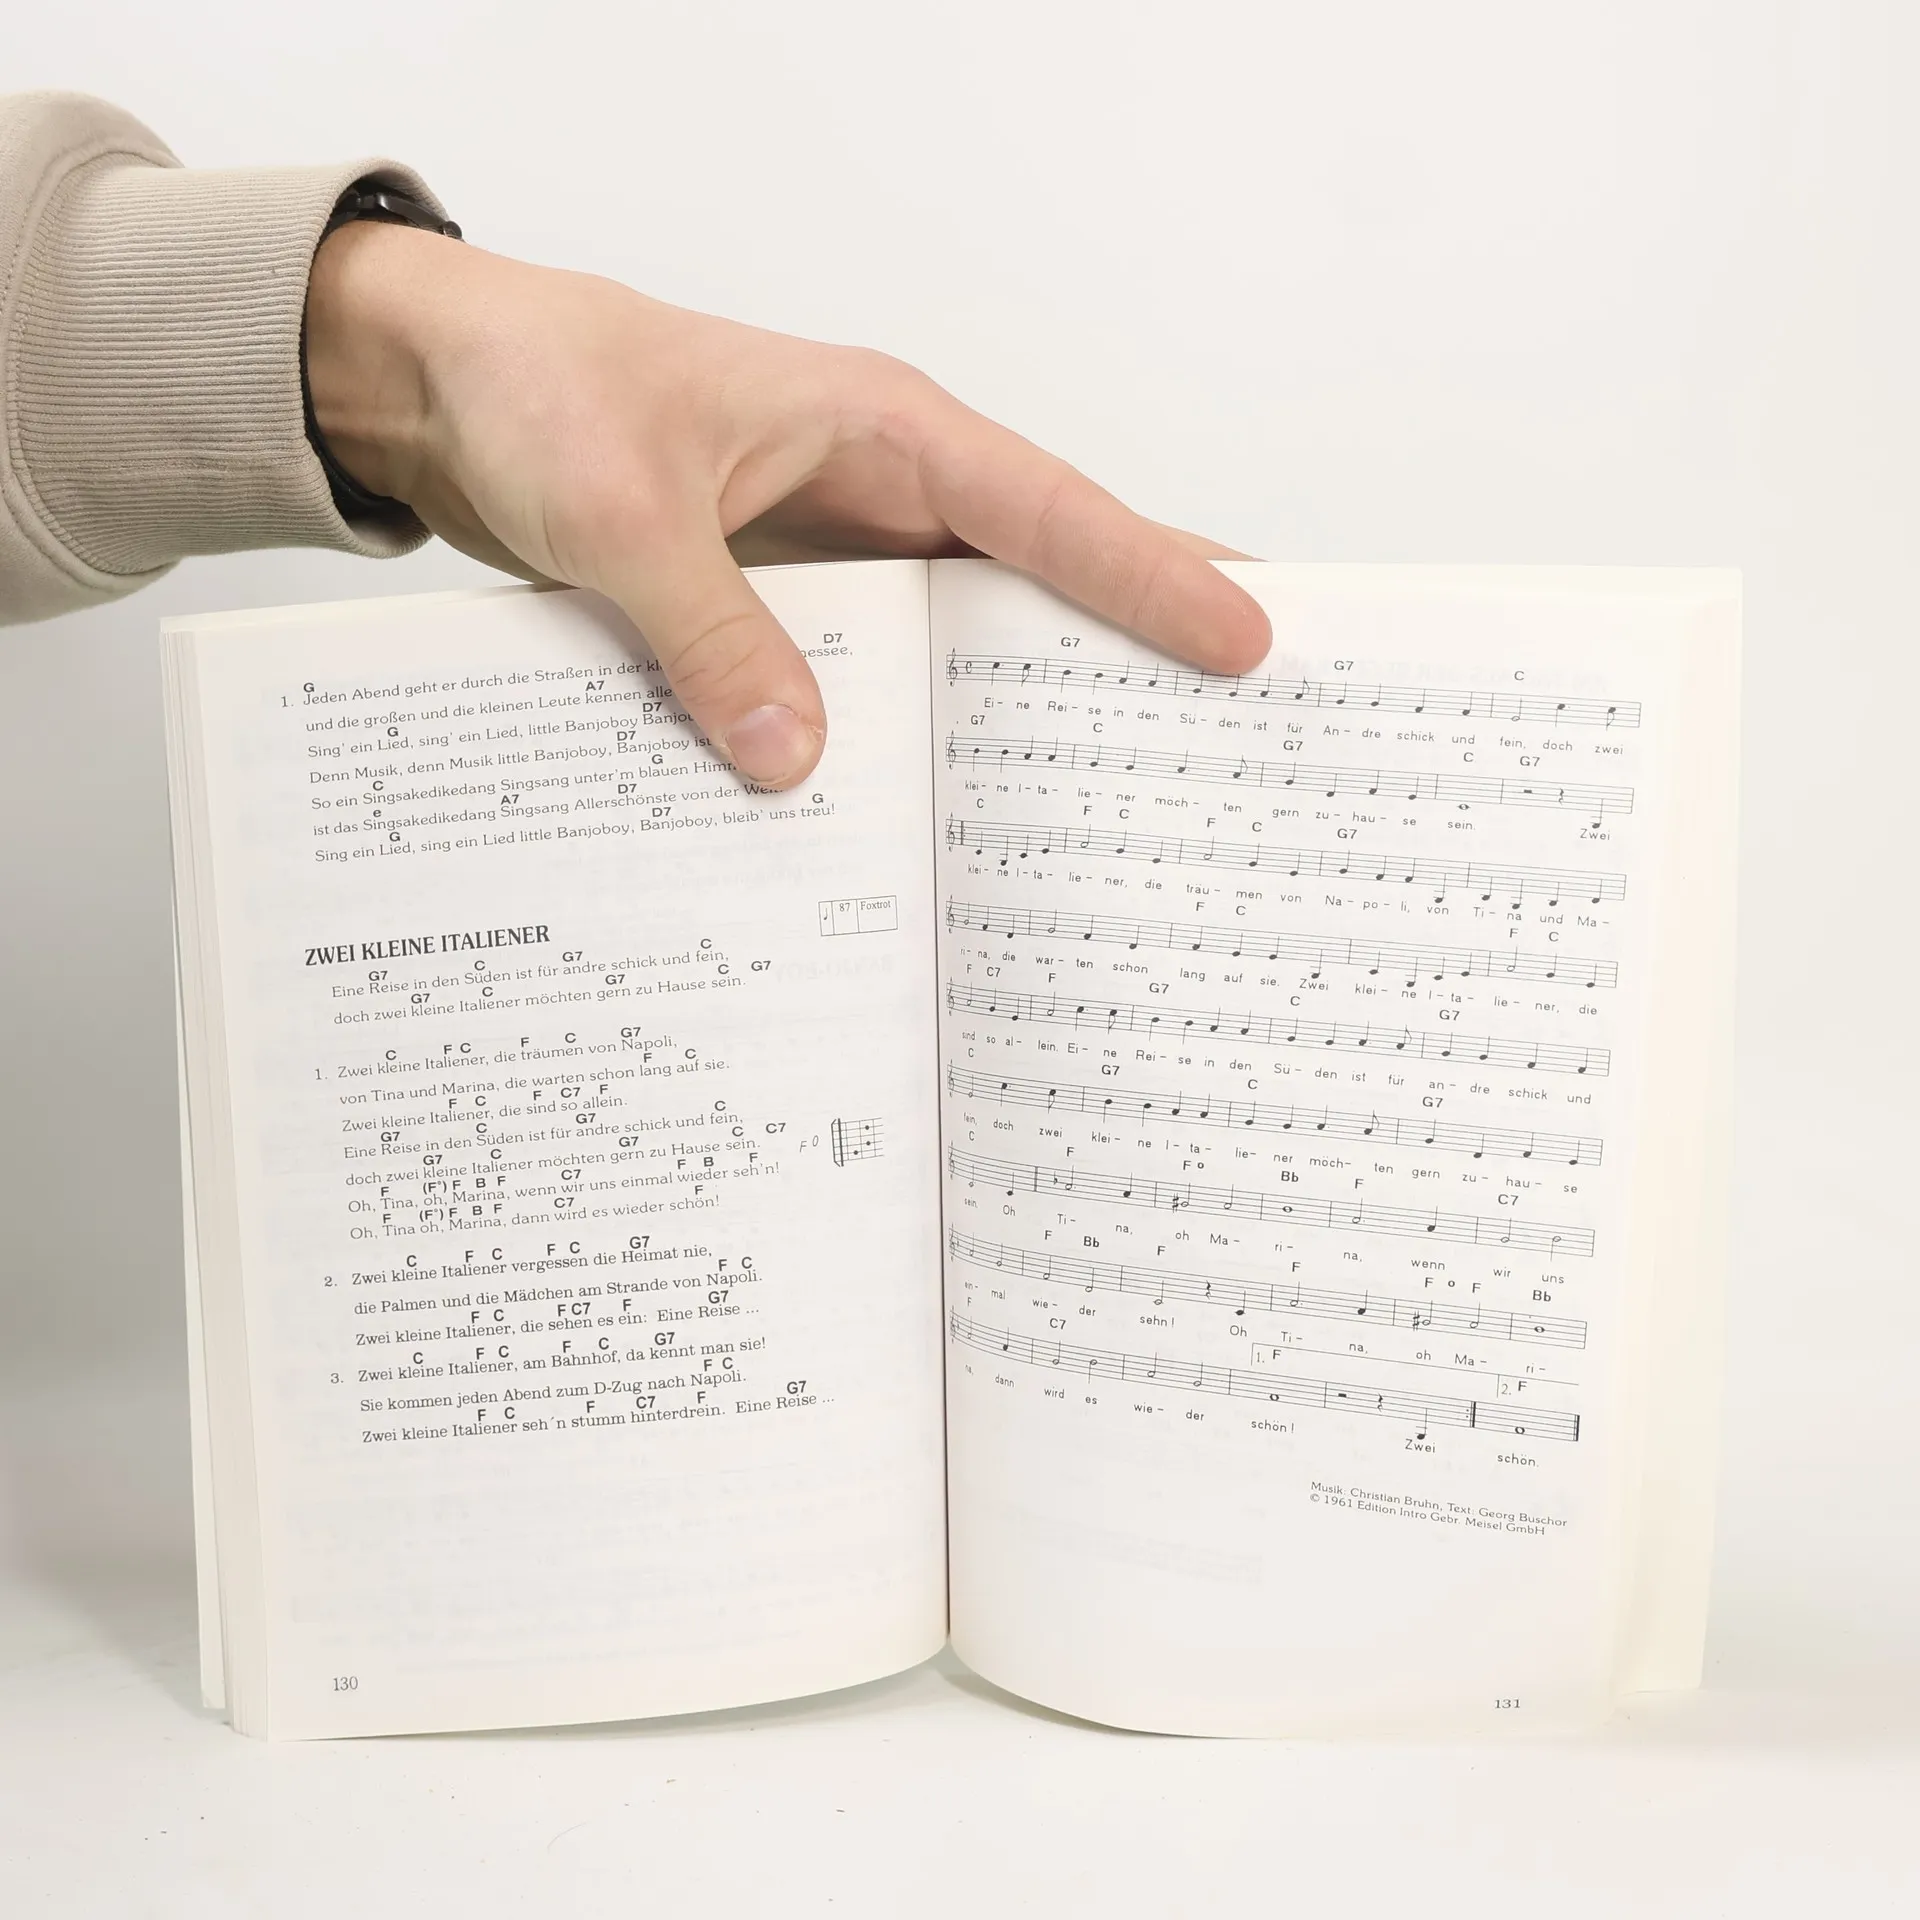 G D7
1. Jeden Abend geht er durch die Straßen in der kl nessee,
A7
und die großen und die kleinen Leute kennen alle
G D7
Sing' ein Lied, sing' ein Lied, little Banjoboy Banjo
D7
Denn Musik, denn Musik little Banjoboy, Banjoboy ist
C G
So ein Singsakedikedang Singsang unter'm blauen Himm
e A7 D7
ist das Singsakedikedang Singsang Allerschönste von der
G D7 G
Sing ein Lied, sing ein Lied little Banjoboy, Banjoboy, bleib' uns treu!
87 Foxtrot
ZWEI KLEINE ITALIENER
G7 C G7 C
Eine Reise in den Süden ist für andre schick und fein,
G7 C G7 C G7
doch zwei kleine Italiener möchten gern zu Hause sein.
C F C F C G7
1. Zwei kleine Italiener, die träumen von Napoli,
F C
von Tina und Marina, die warten schon lang auf sie.
F C F C7 F
Zwei kleine Italiener, die sind so allein.
G7 C G7 C
Eine Reise in den Süden ist für andre schick und fein,
G7 C G7 C C7
doch zwei kleine Italiener möchten gern zu Hause sein.
F (F°) F B F C7 F B F
Oh, Tina, oh, Marina, wenn wir uns einmal wieder seh'n!
F (F°) F B F C7 F
Oh, Tina oh, Marina, dann wird es wieder schön!
F 0
C F C F C G7
2. Zwei kleine Italiener vergessen die Heimat nie,
F C
die Palmen und die Mädchen am Strande von Napoli.
F C F C7 F G7
Zwei kleine Italiener, die sehen es ein: Eine Reise ...
C F C F C G7
3. Zwei kleine Italiener, am Bahnhof, da kennt man sie!
F C
Sie kommen jeden Abend zum D-Zug nach Napoli.
F C F C7 F G7
Zwei kleine Italiener seh´n stumm hinterdrein. Eine Reise ...
130
G7 G7 C
Ei- ne Rei- se in den Sü- den ist für An- dre schick und fein, doch zwei
G7 C G7 C G7
klei- ne I- ta- lie- ner möch- ten gern zu- hau- se sein. Zwei
C F C F C G7
klei- ne I- ta- lie- ner, die träu- men von Na- po- li, von Ti- na und Ma-
F C F C
ri- na, die war- ten schon lang auf sie. Zwei klei- ne I- ta- lie- ner, die
F C7 F G7 C G7
sind so al- lein. Ei- ne Rei- se in den Sü- den ist für an- dre schick und
C G7 C G7
fein, doch zwei klei- ne I- ta- lie- ner möch- ten gern zu- hau- se
C F F o Bb F C7
sein. Oh Ti- na, oh Ma- ri- na, wenn wir uns
F Bb F F F o F Bb
ein- mal wie- der sehn! Oh Ti- na, oh Ma- ri-
F C7 1. F 2. F
na, dann wird es wie- der schön! Zwei schön.
Musik: Christian Bruhn, Text: Georg Buschor
© 1961 Edition Intro Gebr. Meisel GmbH
131